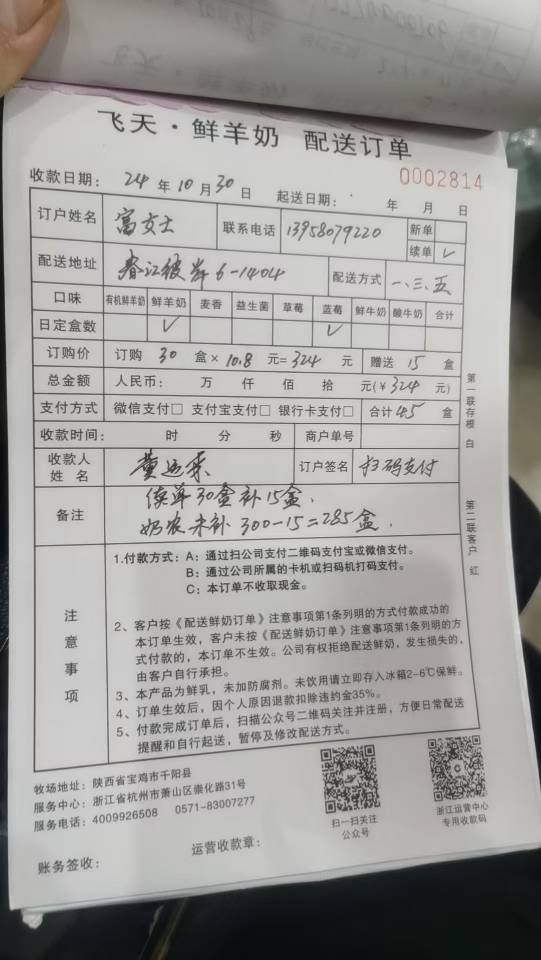 飞天·鲜羊奶 配送订单
收款日期: 24 年 10 月 30 日 起送日期: 年 月 日 0002814
订户姓名 富女士 联系电话 13958079220 新单
续单 ✓
配送地址 春江彼岸 6-1404 配送方式 一、三、五
口味 有机鲜羊奶 鲜羊奶 麦香 益生菌 草莓 蓝莓 鲜牛奶 酸牛奶 合计
日定盒数 ✓ ✓
订购价 订购 30 盒× 10.8 元= 324 元 赠送 15 盒
总金额 人民币: 万 仟 佰 拾 元(¥ 324 元)
支付方式 微信支付□ 支付宝支付□ 银行卡支付□ 合计 45 盒
收款时间: 时 分 秒 商户单号
收款人姓名 黄运 订户签名 扫码支付
备注 续单30盒补15盒.
奶农未补 300-15=285盒.
注意事项
1.付款方式: A: 通过扫公司支付二维码支付宝或微信支付。
B: 通过公司所属的卡机或扫码机打码支付。
C: 本订单不收取现金。
2、客户按《配送鲜奶订单》注意事项第1条列明的方式付款成功的
本订单生效，客户未按《配送鲜奶订单》注意事项第1条列明的方
式付款的，本订单不生效。公司有权拒绝配送鲜奶，发生损失的，
由客户自行承担。
3、本产品为鲜乳，未加防腐剂。未饮用请立即存入冰箱2-6℃保鲜。
4、订单生效后，因个人原因退款扣除违约金35%。
5、付款完成订单后，扫描公众号二维码关注并注册，方便日常配送
提醒和自行起送，暂停及修改配送方式。
第一联存根 白
第二联客户 红
牧场地址: 陕西省宝鸡市千阳县
服务中心: 浙江省杭州市萧山区崇化路31号
服务电话: 4009926508 0571-83007277
扫一扫关注
公众号
浙江运营中心
专用收款码
账务签收: 运营收款章: